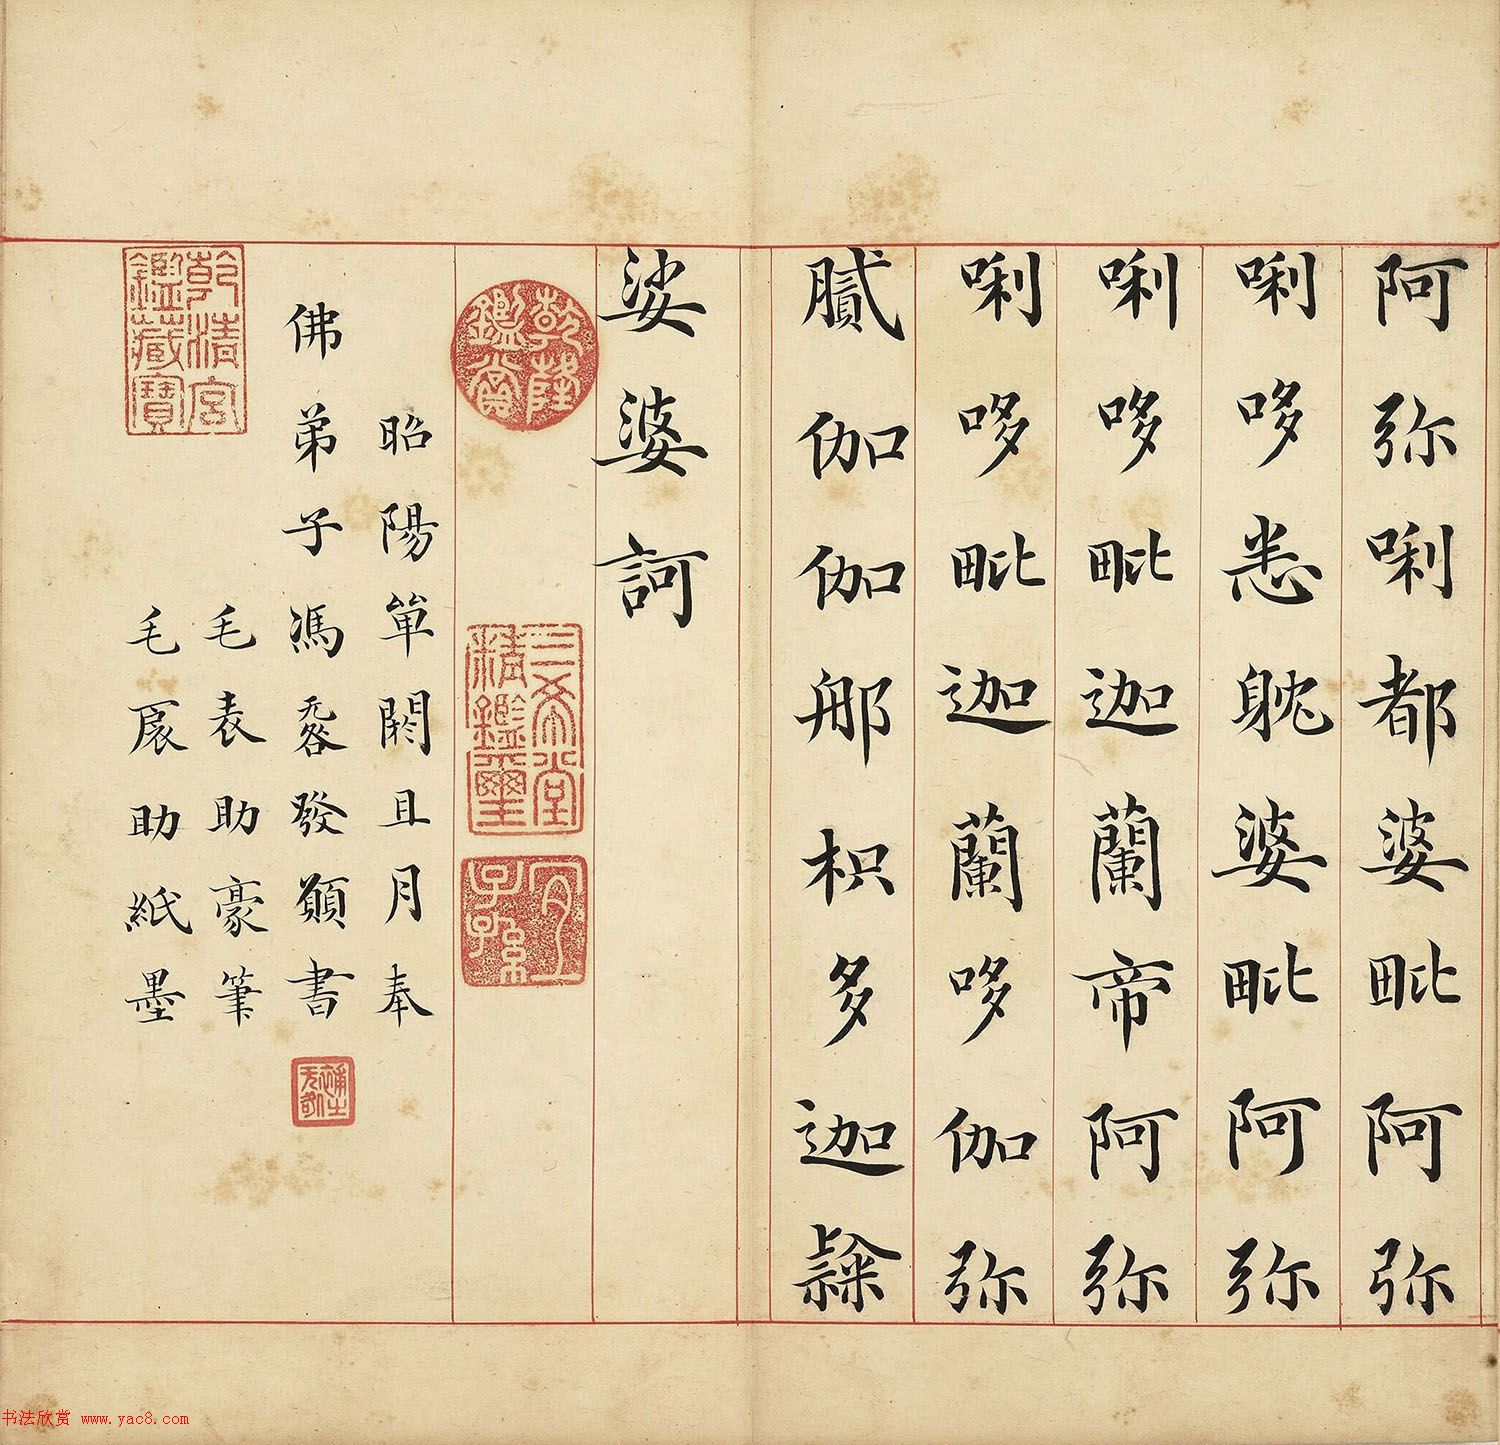 阿弥唎都婆毗阿弥
唎哆悉躭婆毗阿弥
唎哆毗迦蘭帝阿弥
唎哆毗迦蘭哆伽弥
膩伽伽那枳多迦隸
娑婆訶
乾隆鑑賞
三希堂精鑑璽
宜子孫
昭陽單閼且月奉
佛弟子馮發願書
毛表助豪筆
毛扆助紙墨
乾清宮鑑藏寶
书法欣赏 www.yac8.com